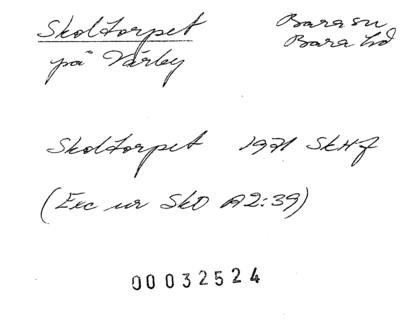 Skoltorpet
på Värby
Bara sn
Bara hd
Skoltorpet 1971 SkHf
(Exc ur SkO A2:39)
00032524